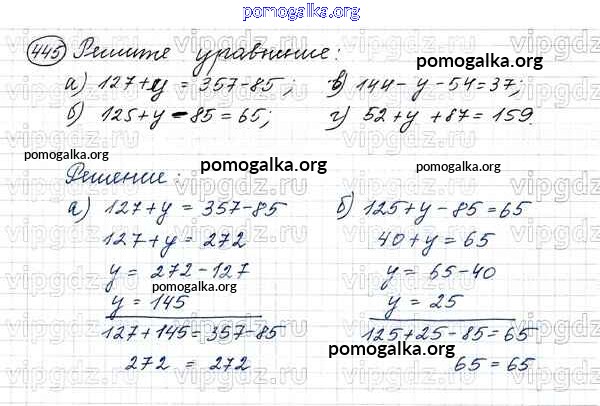 pomogalka.org
445 Решите уравнение:
pomogalka.org
а) 127+y = 357-85; в) 144-y-54=37;
б) 125+y-85=65; г) 52+y+87=159.
pomogalka.org
pomogalka.org
pomogalka.org
Решение:
а) 127+y = 357-85
127+y = 272
y = 272-127
pomogalka.org
y = 145
127+145=357-85
272 = 272
б) 125+y-85=65
40+y=65
y = 65-40
y = 25
125+25-85=65
pomogalka.org
65=65